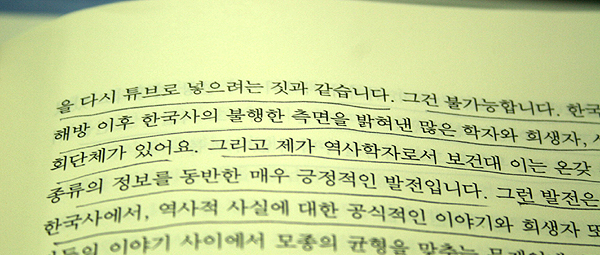 을 다시 튜브로 넣으려는 짓과 같습니다. 그건 불가능합니다. 한국
해방 이후 한국사의 불행한 측면을 밝혀낸 많은 학자와 희생자,
회단체가 있어요. 그리고 제가 역사학자로서 보건대 이는 온갖
종류의 정보를 동반한 매우 긍정적인 발전입니다. 그런 발전은
한국사에서, 역사적 사실에 대한 공식적인 이야기와 희생자 또
이야기 사이에서 모종의 균형을 맞추는